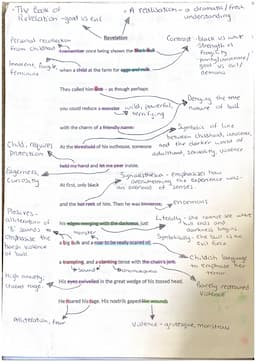 - The Book of Revelation - good vs evil
- A realisation - a dramatic / fresh understanding
Revelation
Personal recollection from childhood
Contrast: black vs white
strength vs fragility
good vs evil / demons
I remember once being shown the black bull
Innocent, fragile, feminine
when a child at the farm for eggs and milk.
They called him Bob - as though perhaps
Denying the true nature of bull
you could reduce a monster
wild, powerful, terrifying
with the charm of a friendly name.
Symbolic of line between childhood, innocence, and the darker world of adulthood, sexuality, violence
Child, requires protection
At the threshold of his outhouse, someone
held my hand and let me peer inside.
Eagerness, curiosity
Synaesthesia - emphasises how overwhelming the experience was - an overload of senses
At first, only black
and the hot reek of him. Then he was immense,
enormous
Plosives - alliteration of 'B' sounds to emphasise the harsh violence of bull
his edges merging with the darkness, just
Literally - she cannot see what bull ends and darkness begins
Symbolically - the bull is the evil force
monster
a big bulk and a roar to be really scared of,
Childish language to emphasise her terror
a trampling, and a clanking tense with the chain's jerk.
sound
Onomatopoeia
High anxiety, chained rage.
His eyes swivelled in the great wedge of his tossed head.
Barely restrained violence
He roared his rage. His nostrils gaped like wounds.
Alliteration, fear
Violence - grotesque, monstrous